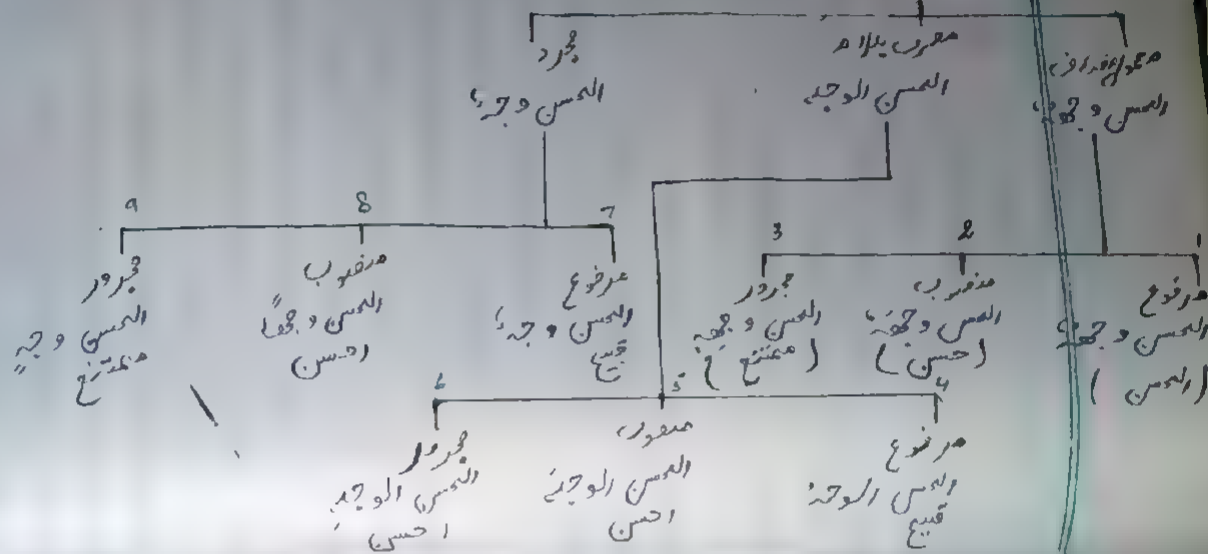 معمول مضاف
الحسن وجهه
معرف بلام
الحسن الوجه
مجرد
الحسن وجه
1
مرفوع
الحسن وجهه
(احسن)
2
منصوب
الحسن وجهه
(حسن)
3
مجرور
الحسن وجهه
(ممتنع)
7
مرفوع
الحسن وجه
قبیح
8
منصوب
الحسن وجهاً
احسن
9
مجرور
الحسن وجهٍ
ممتنع
4
مرفوع
الحسن الوجه
قبیح
5
منصوب
الحسن الوجه
احسن
6
مجرور
الحسن الوجهِ
احسن